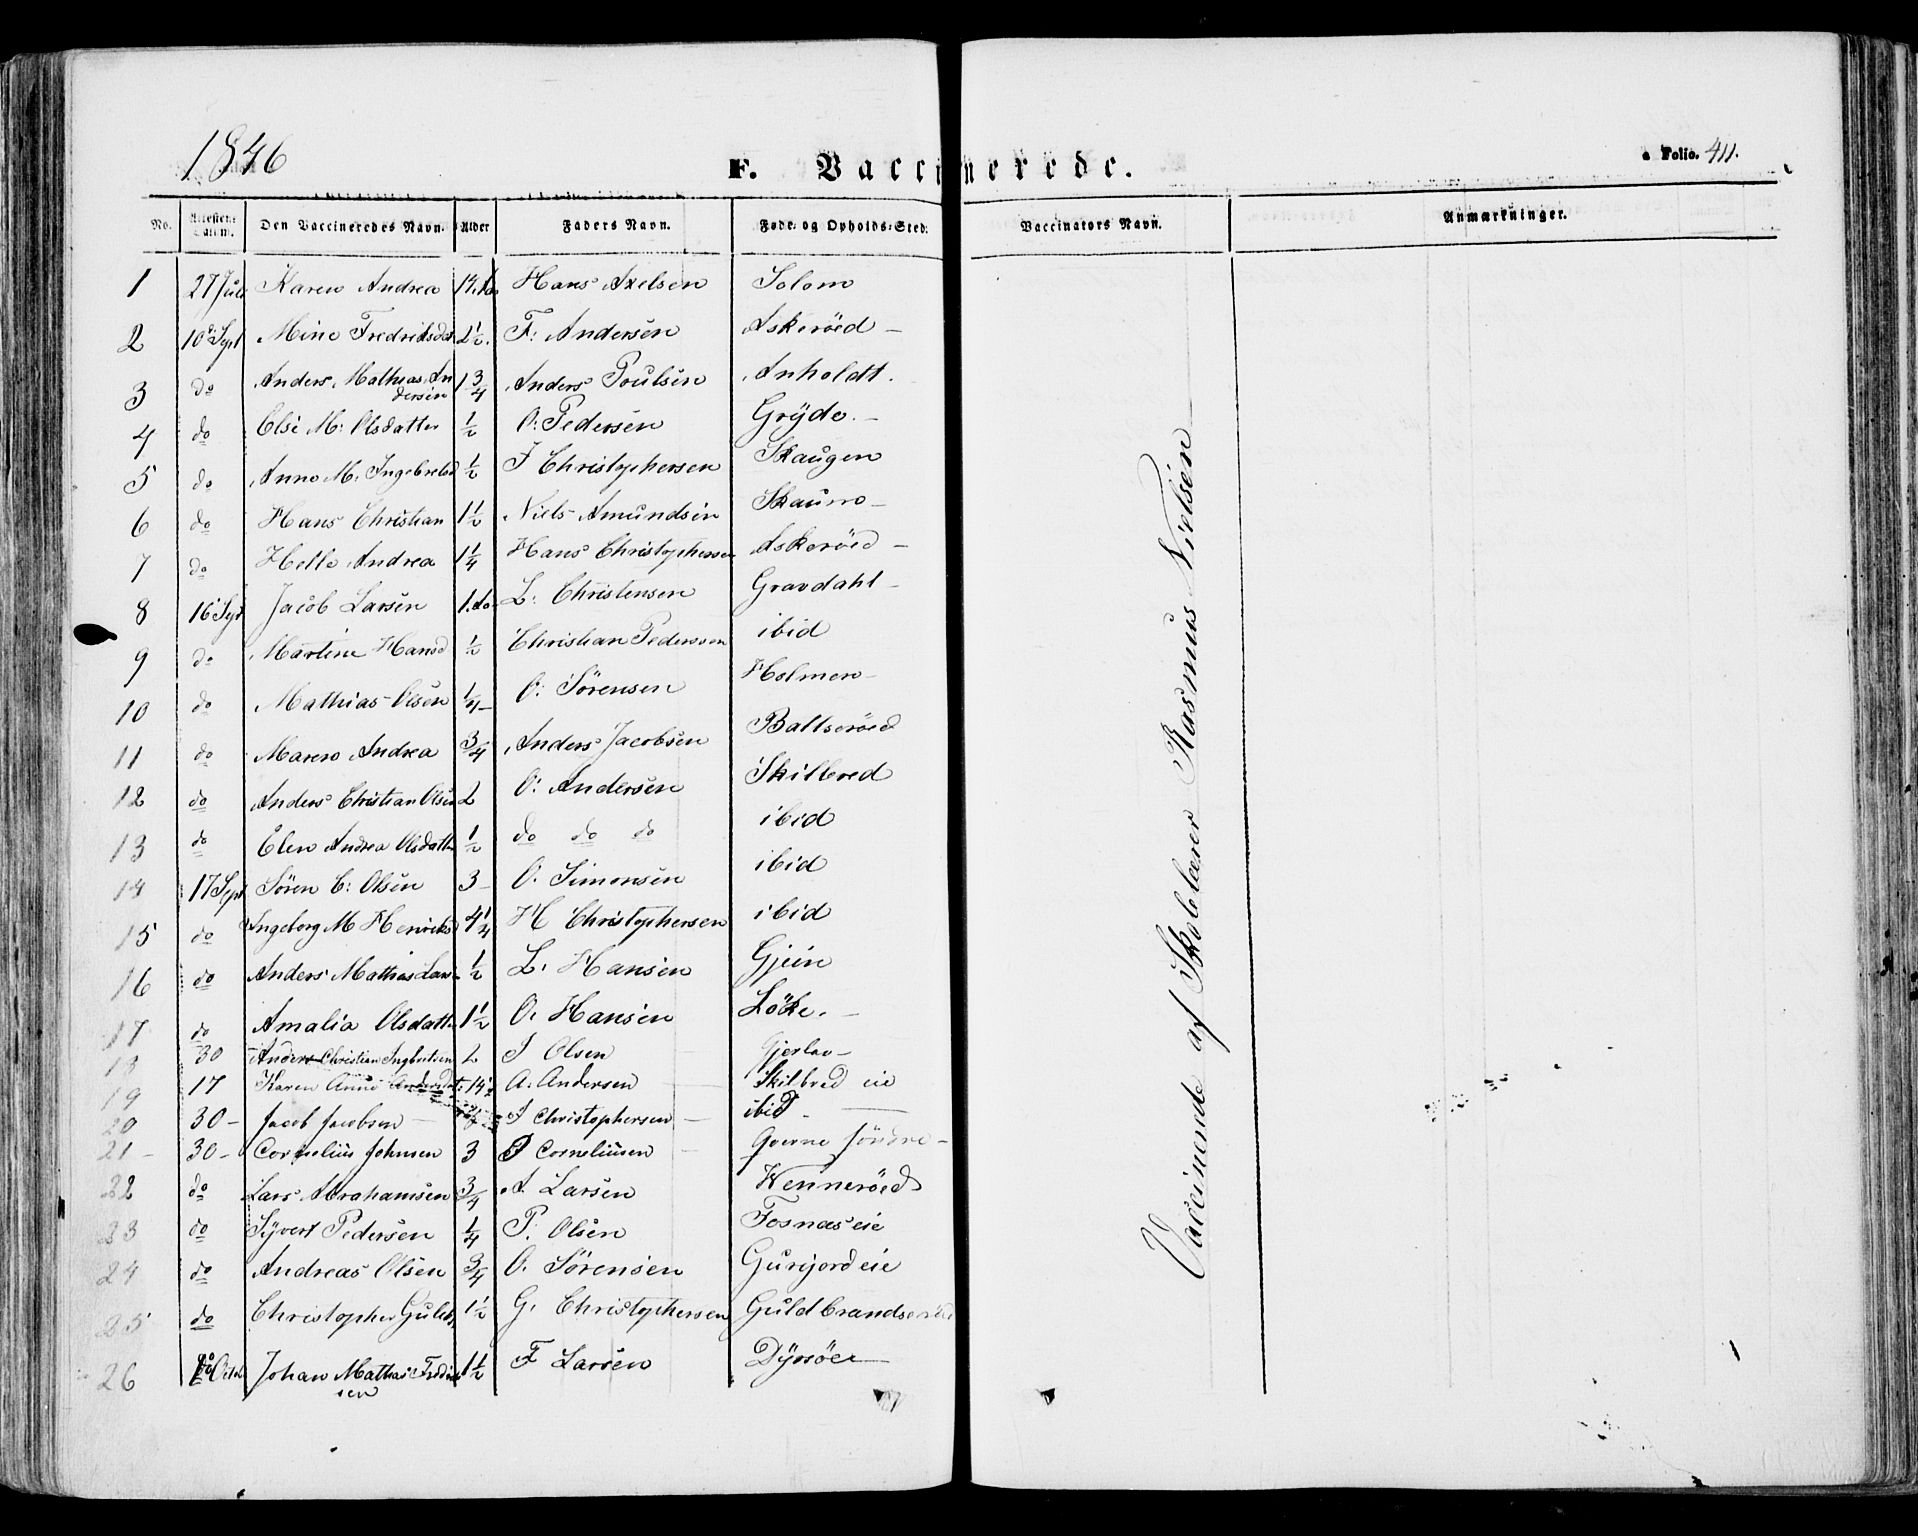 1846
F. Vaccinerede.
Folio. 411.
No. Attestens Datum. Den Vaccineredes Navn. Alder Faders Navn. Føde- og Opholds-Sted. Vaccinators Navn. Anmærkninger.
1 27 Juli Karen Andrea Hans Axelsen Solem
2 10 Sept Mine Fredriksdat 2 1/2. F: Andersen Askerøed –
3 do Anders Mathias An
dersen 1 3/4 Anders Poulsen Anholdt.
4 do Else M: Olsdatter 1/2 O: Pedersen Gryde. –
5 do Anne M. Ingebretsd 1/2 I Christophersen Skaugen
6 do Hans Christian 1 1/2 Niels Amundsen Skaum –
7 do Helle Andrea 1 1/4 Hans Christophersen Askerøed –
8 16 Sept Jacob Larsen 1. do L: Christensen Gravdahl –
9 do Martine Hansd 1/2 Christian Pedersen ibid
10 do Mathias Olsen 1/4 – O: Sørensen Holmen –
11 do Maren Andrea 3/4 Anders Jacobsen Baltserøed
12 do Anders Christian Olsen 2 O: Andersen Skilbred
13 do Elen Andrea Olsdatter 1/2 do do do ibid
14 17 Sept Søren C: Olsen 3 – O. Simonsen ibid
15 do Ingeborg M Henriksd 4 1/4 H Christophersen ibid
16 do Anders Mathias Lars 1/2 L. Hansen Gjein
17 do Amalia Olsdatter 1 1/2 O. Hansen Løke. –
18 30 Anders Christian Ingbretsen 2 I Olsen Gjerløv –
19 17 Karen Anne Andersdat: 14 A. Andersen Skilbred eie
20 30 – Jacob Jacobsen – I Christophersen – ibid –
21 – 30 – Cornelius Johnsen 3 J Corneliusen – Goerne søndre –
22 do Lars Abrahamsen 3/4 A Larsen Hennerøed
23 do Syvert Pedersen 1/4 P: Olsen Fosnas eie
24 do Andreas Olsen 3/4 O. Sørensen Gurijord eie
25 do Christopher Guldb, 1 1/2 G. Christophersen Guldbrandserød
26 Octob Johan Mathias Fredrik
sen 1 1/2 F Larsen Dyrsøe –
Vaccinerede af Skolelærer Rasmus Nielsen